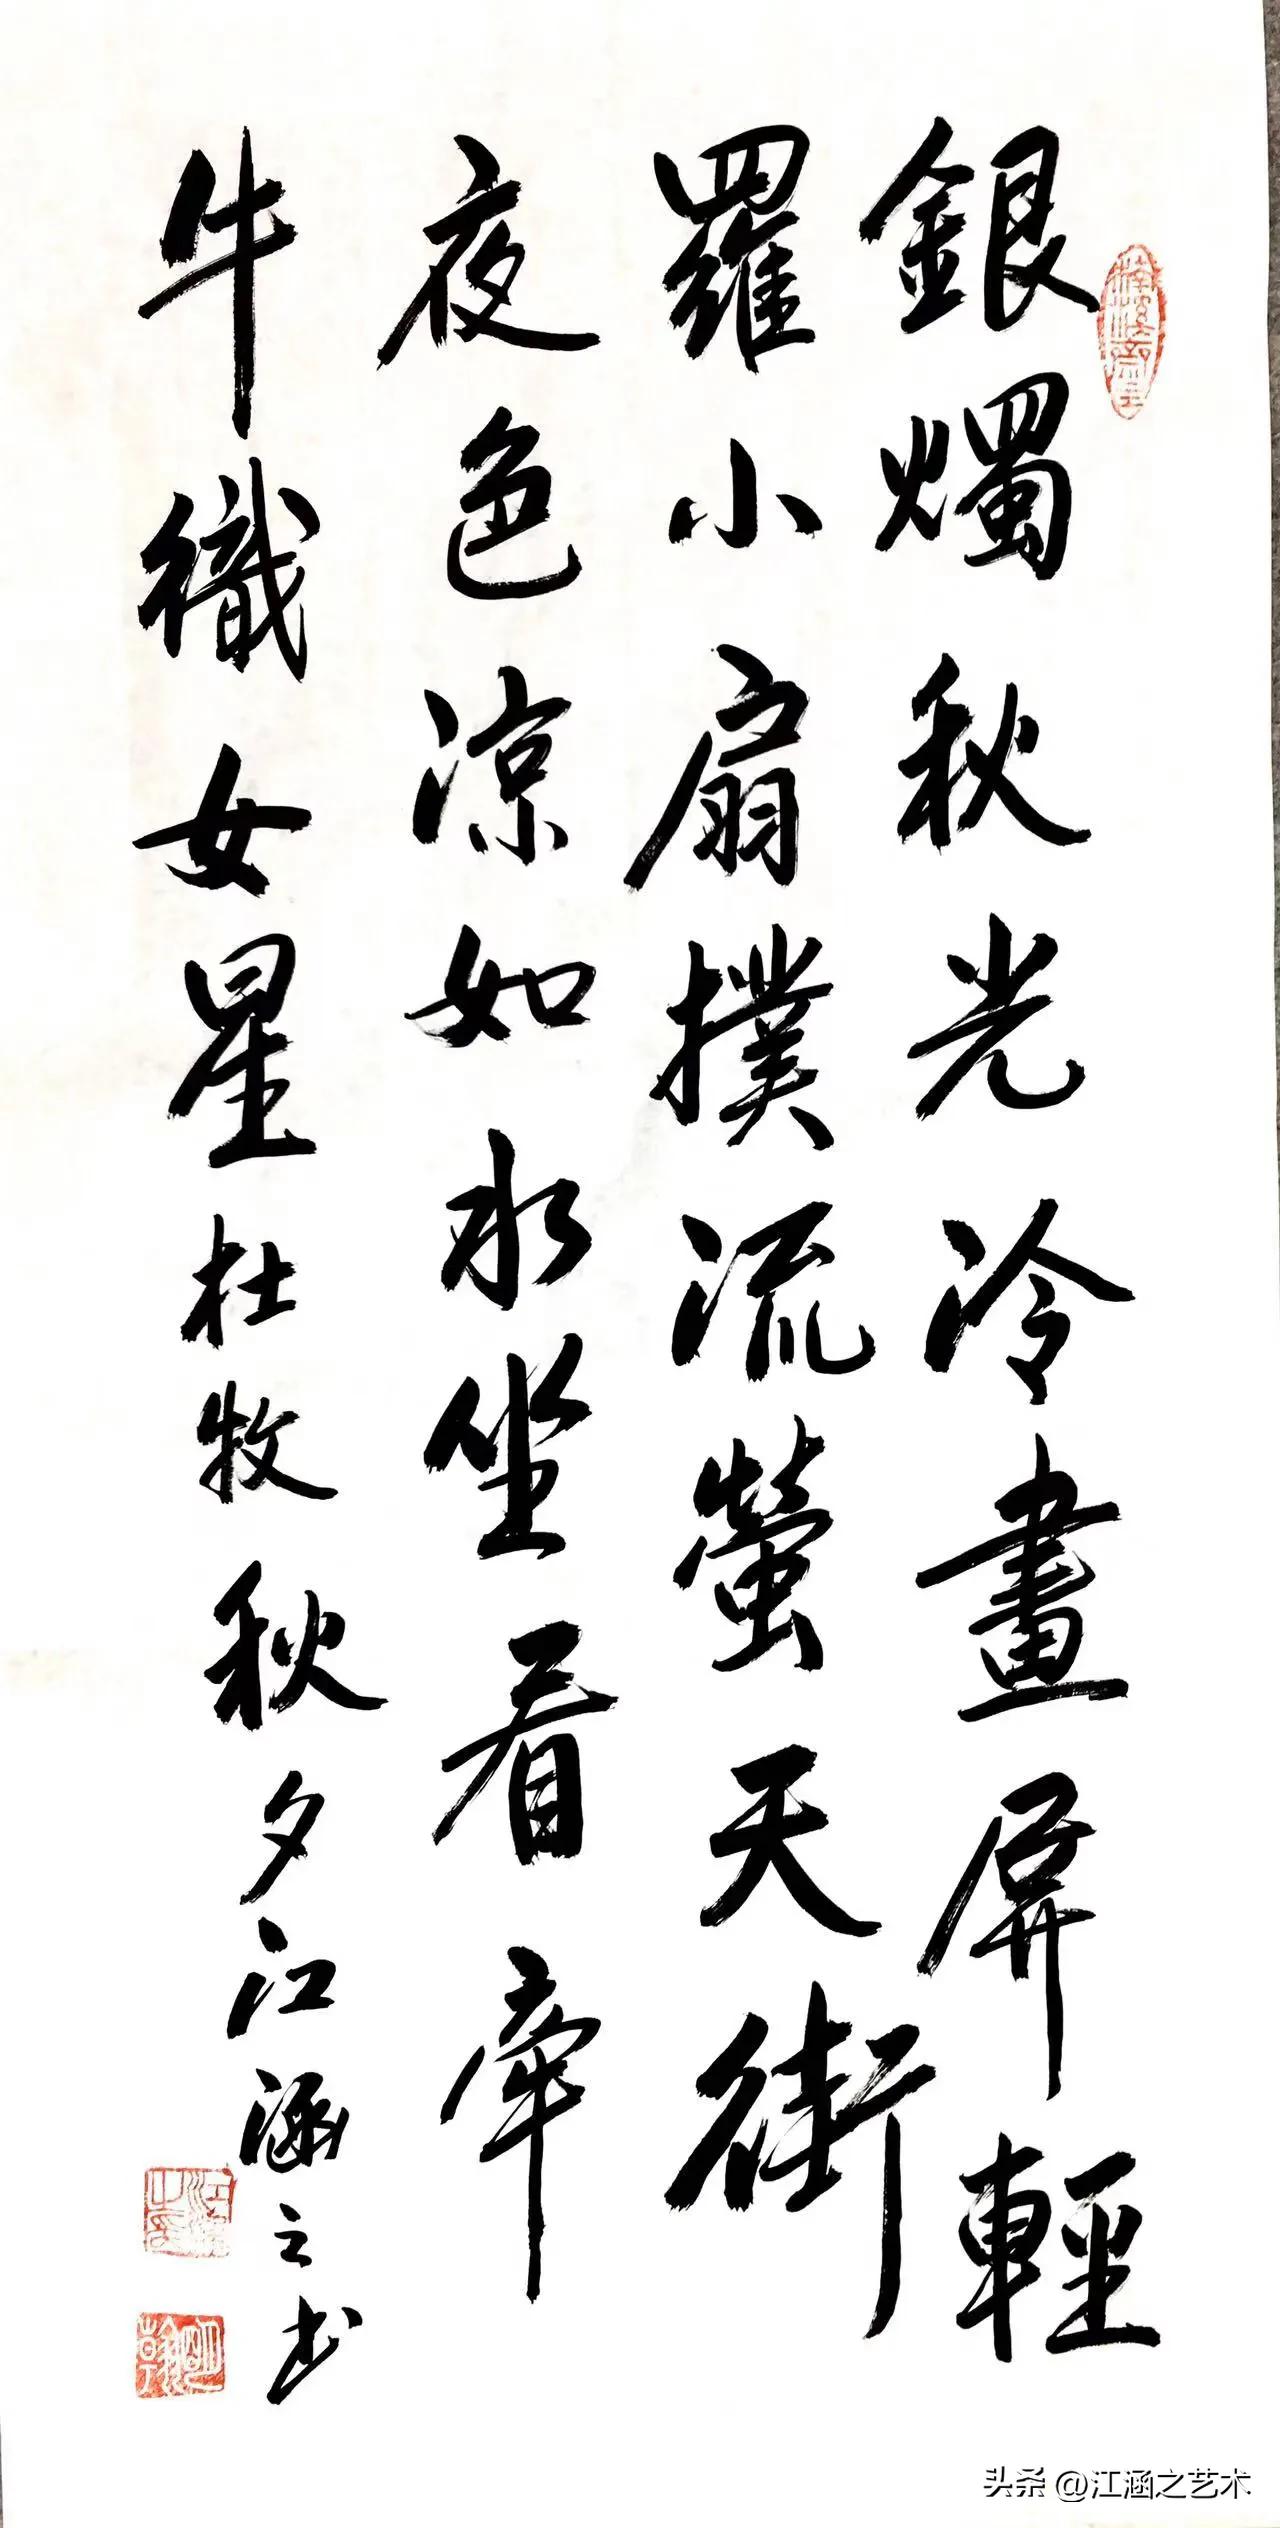 銀燭秋光冷畫屏輕
羅小扇撲流螢天街
夜色涼如水坐看牽
牛織女星杜牧秋夕江涵之书
头条 @江涵之艺术